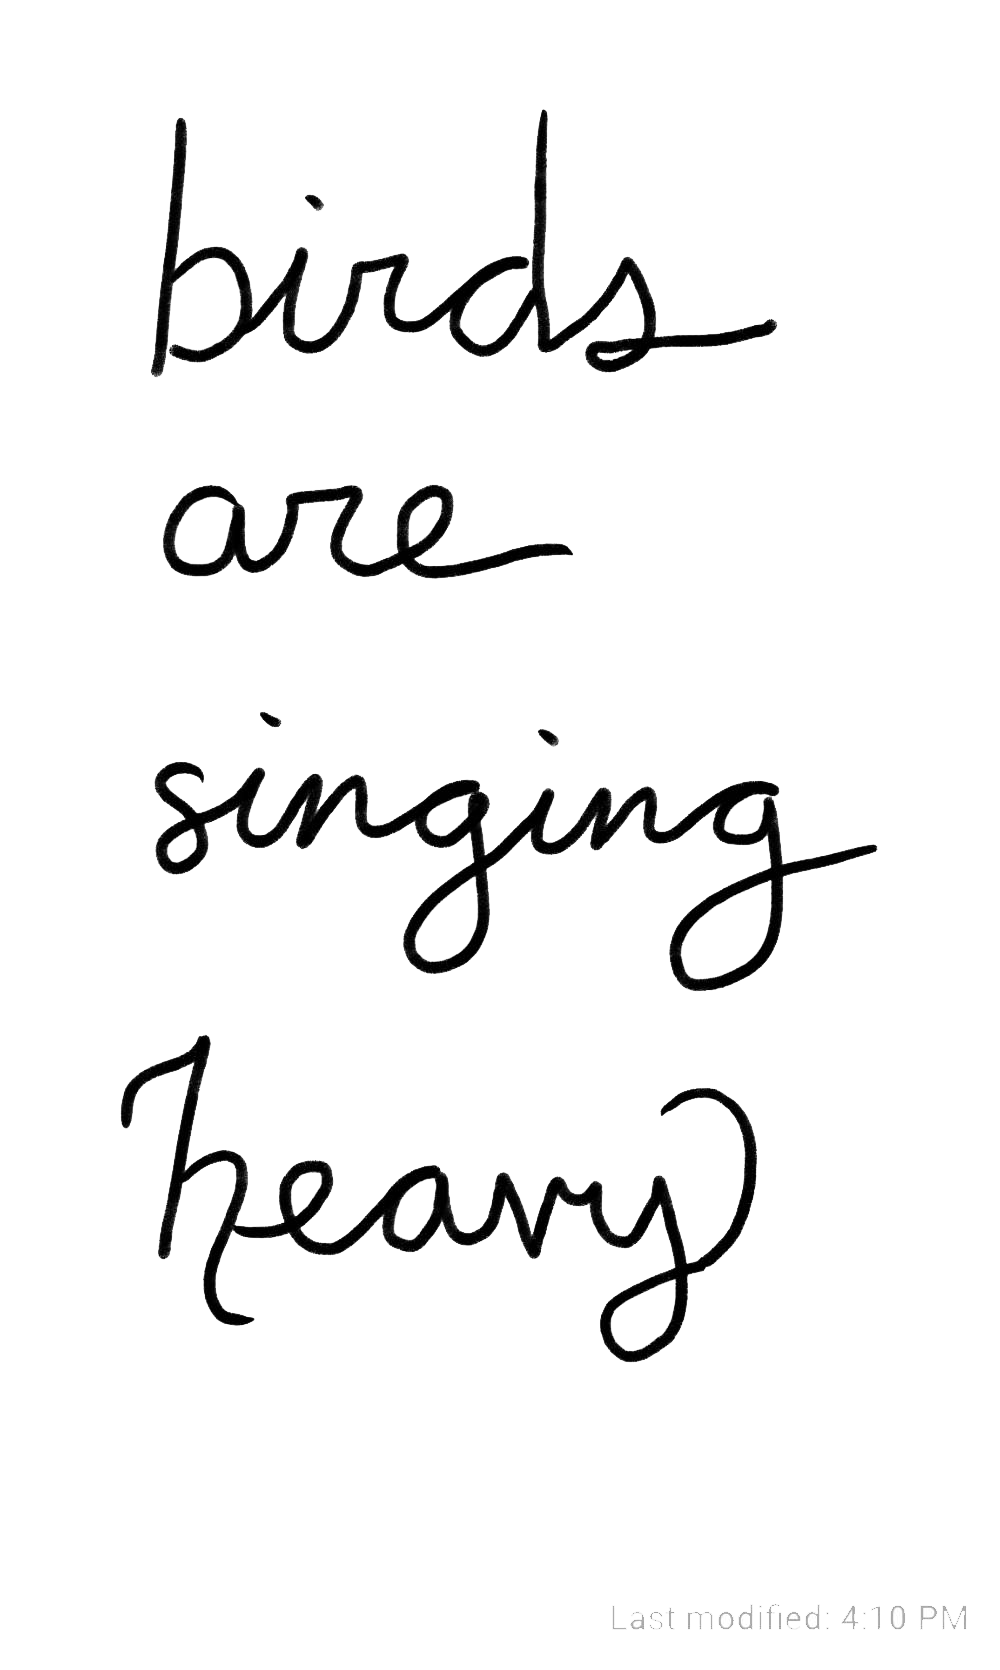 birds
are
singing
heavy
Last modified: 4:10 PM